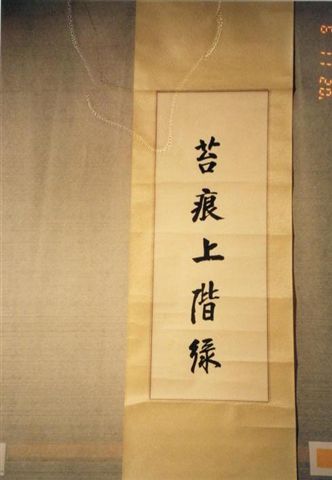 苔痕上階綠
6 11 20